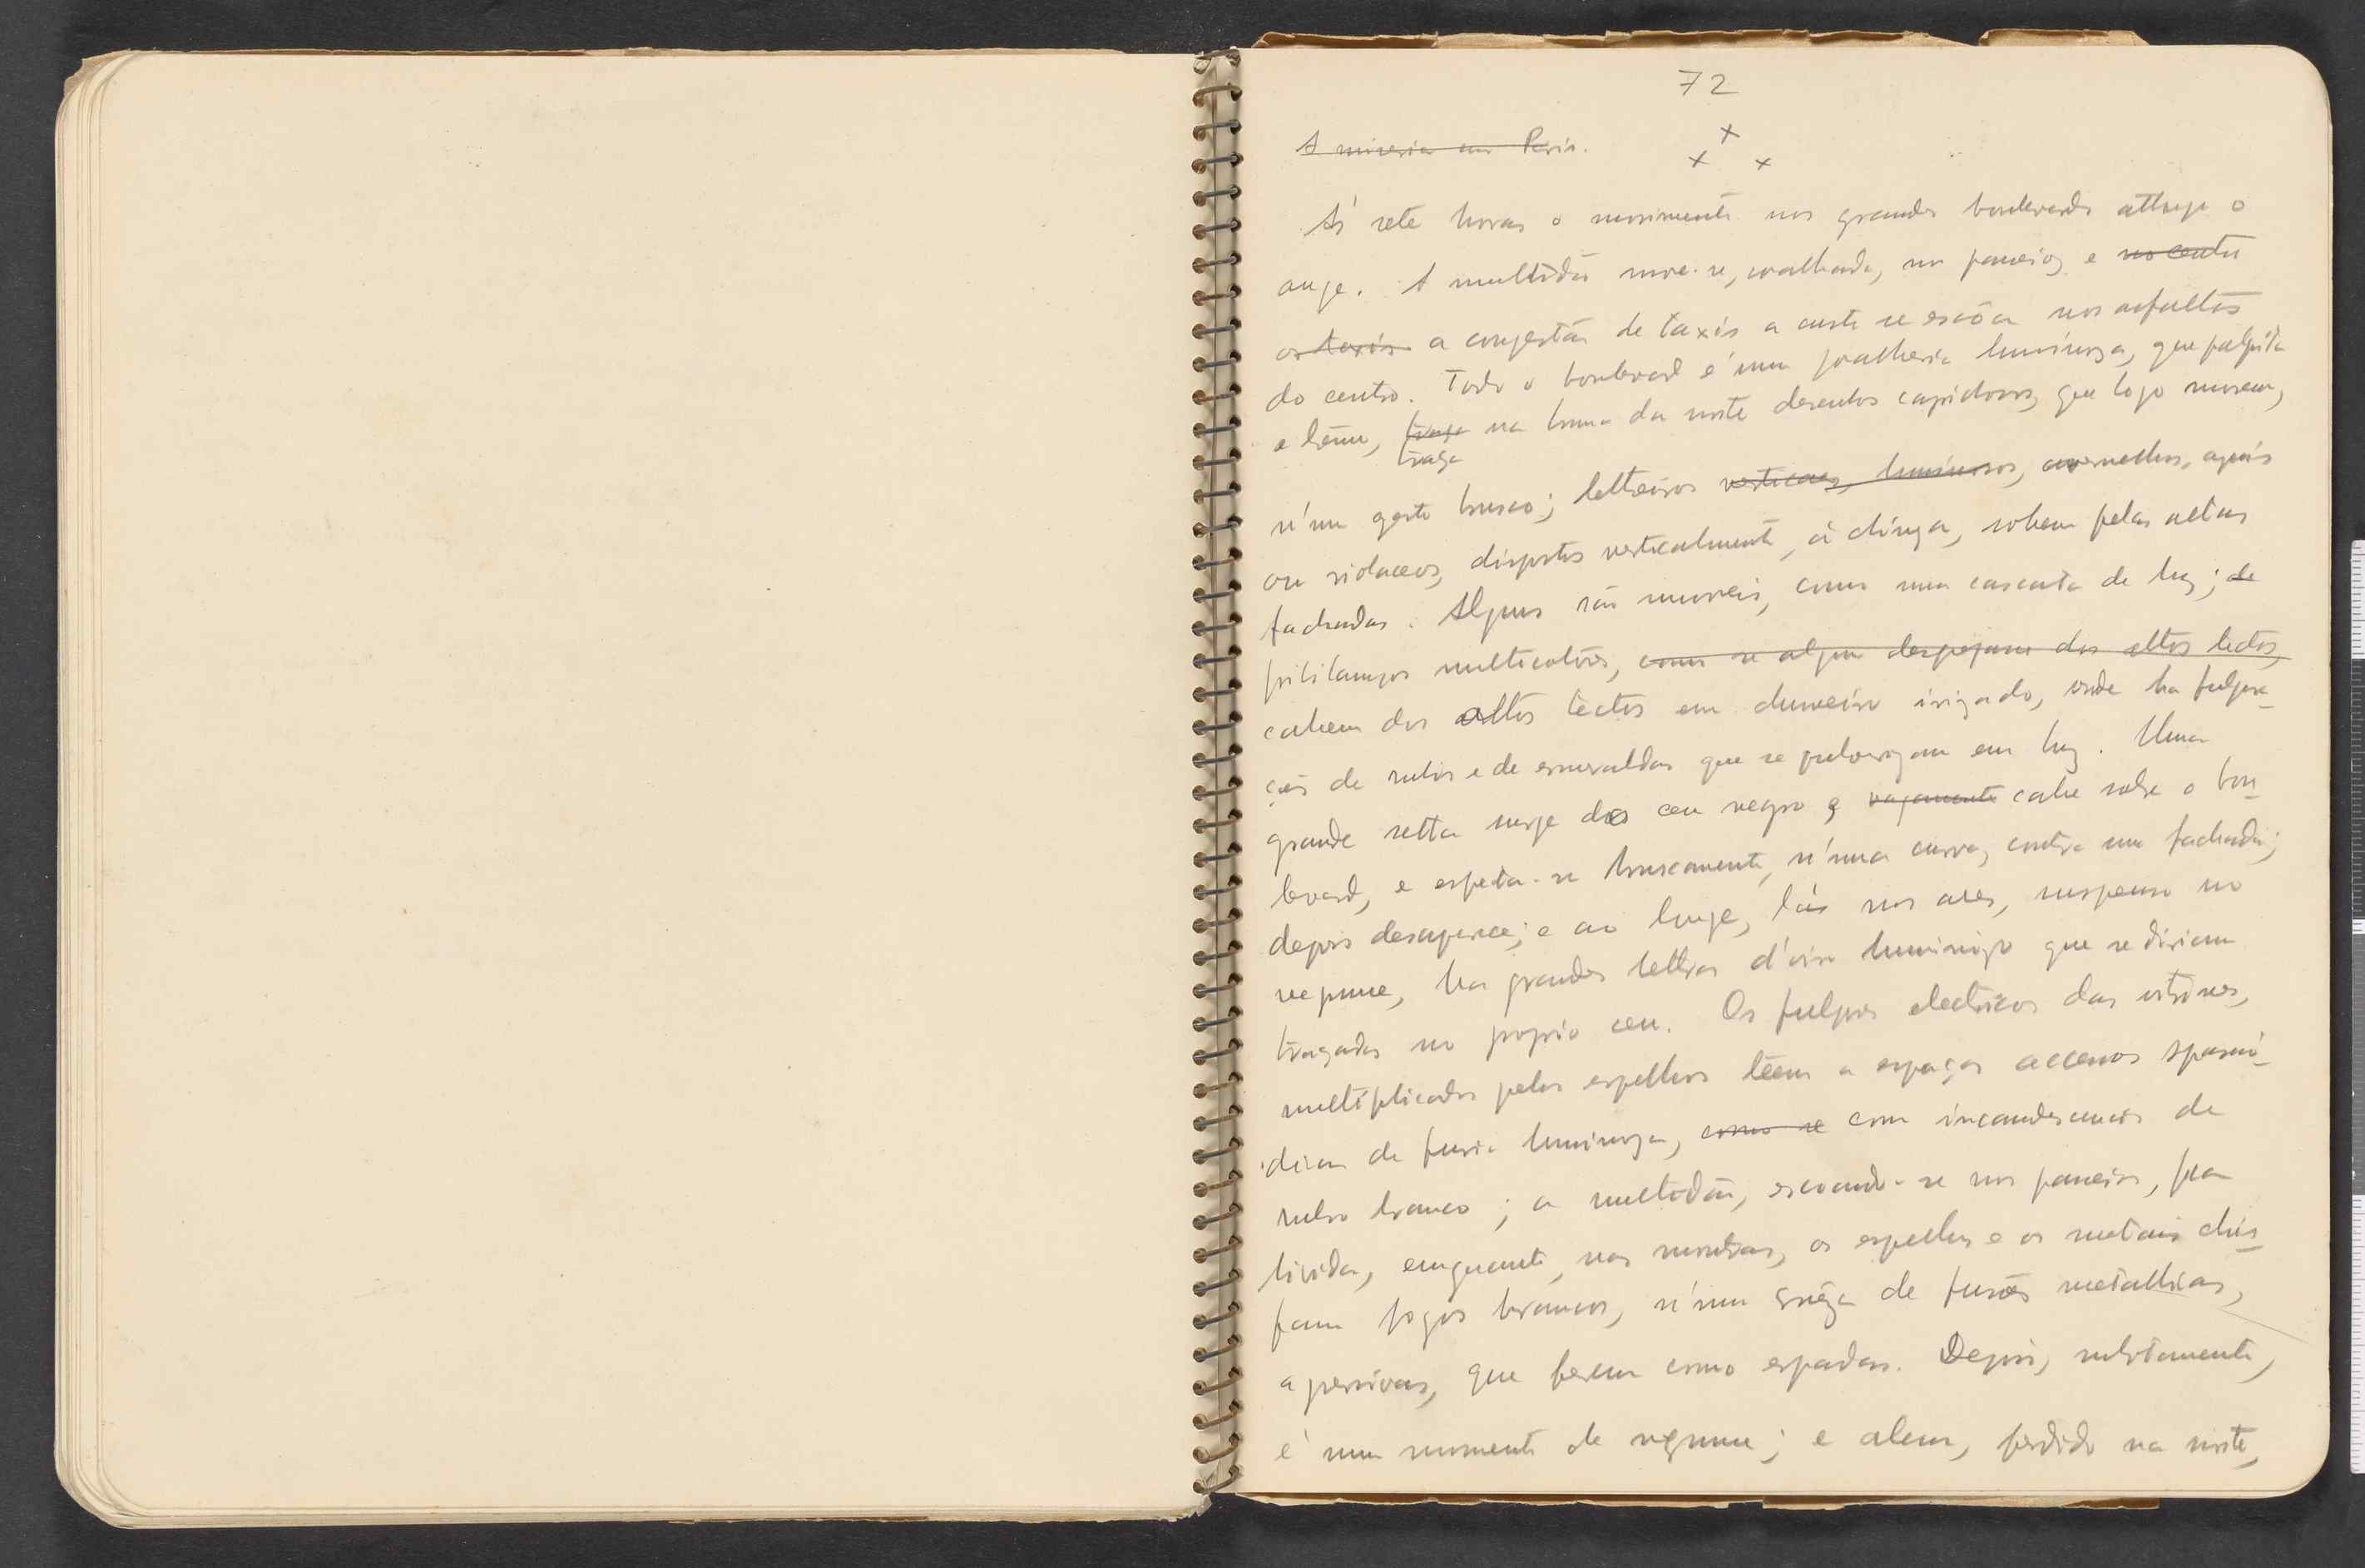 72
A miseria em Paris.
x
x x
Ás sete horas o movimento nos grandes boulevards attinge o
auge. A multidão move-se, coalhada, nos passeios e no centro
os taxis a congestão de taxis a custo se escôa nos asfaltos
do centro. Todo o boulevard é uma joalheria luminosa, que palpita
e treme, traça na bruma da noite desenhos caprichosos, que logo morrem,
traça
n'um gesto brusco; lettreiros verticaes, luminosos, avermelhos, azuis
ou violaceos, dispostos verticalmente, á chineza, sobem pelas altas
fachadas. Alguns são moveis, como uma cascata de luz; de
pirilampos multicolores, como se alguem despejasse dos altos tectos,
cahem dos altos tectos em chuveiro irizado, onde ha fulgura-
ções de rubis e de esmeraldas que se pulverizam em luz. Uma
grande setta surge do ceu negro e vagamente cahe sobre o bou-
levard, e espeta-se bruscamente, n'uma curva, contra uma fachada;
depois desaparece; e ao longe, lá nos ares, suspenso no
negrume, ha grandes lettras d'oiro luminoso que se diriam
traçadas no proprio ceu. Os fulgores electricos das vitrines,
multiplicados pelos espelhos têem a espaços accessos spasmo-
dicos de furia luminosa, como se com incandescencias de
rubro branco; a multidão, escoando-se nos passeios, fica
livida, emquanto, nas montras, os espelhos e os metais chis-
pam fogos brancos, n'uma de fusões metallicas,
agressivas, que ferem como espadas. Depois, subitamente,
é um momento de negrume; e alem, perdido na noite,